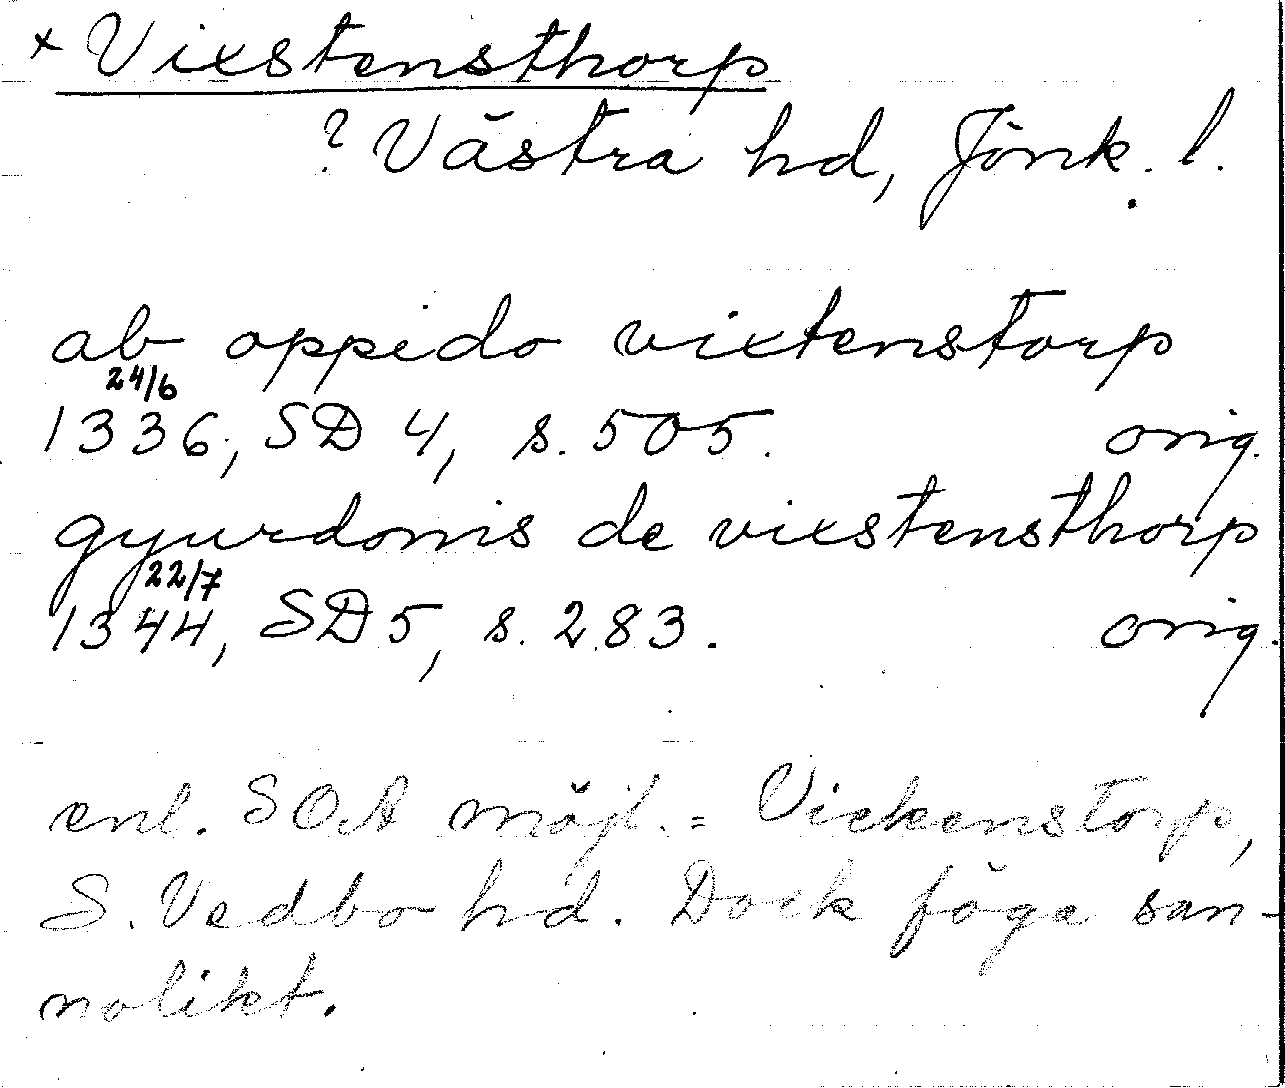 × Vixstensthorp
? Västra hd, Jönk. l.
ab oppido vixtenstorp
24/6
1336, SD 4, s. 505. orig.
gyurdonis de vixstensthorp
22/7
1344, SD 5, s. 283. orig.
enl. SOÄ möjl. = Vickenstorp,
S. Vedbo hd. Dock föga san-
nolikt.